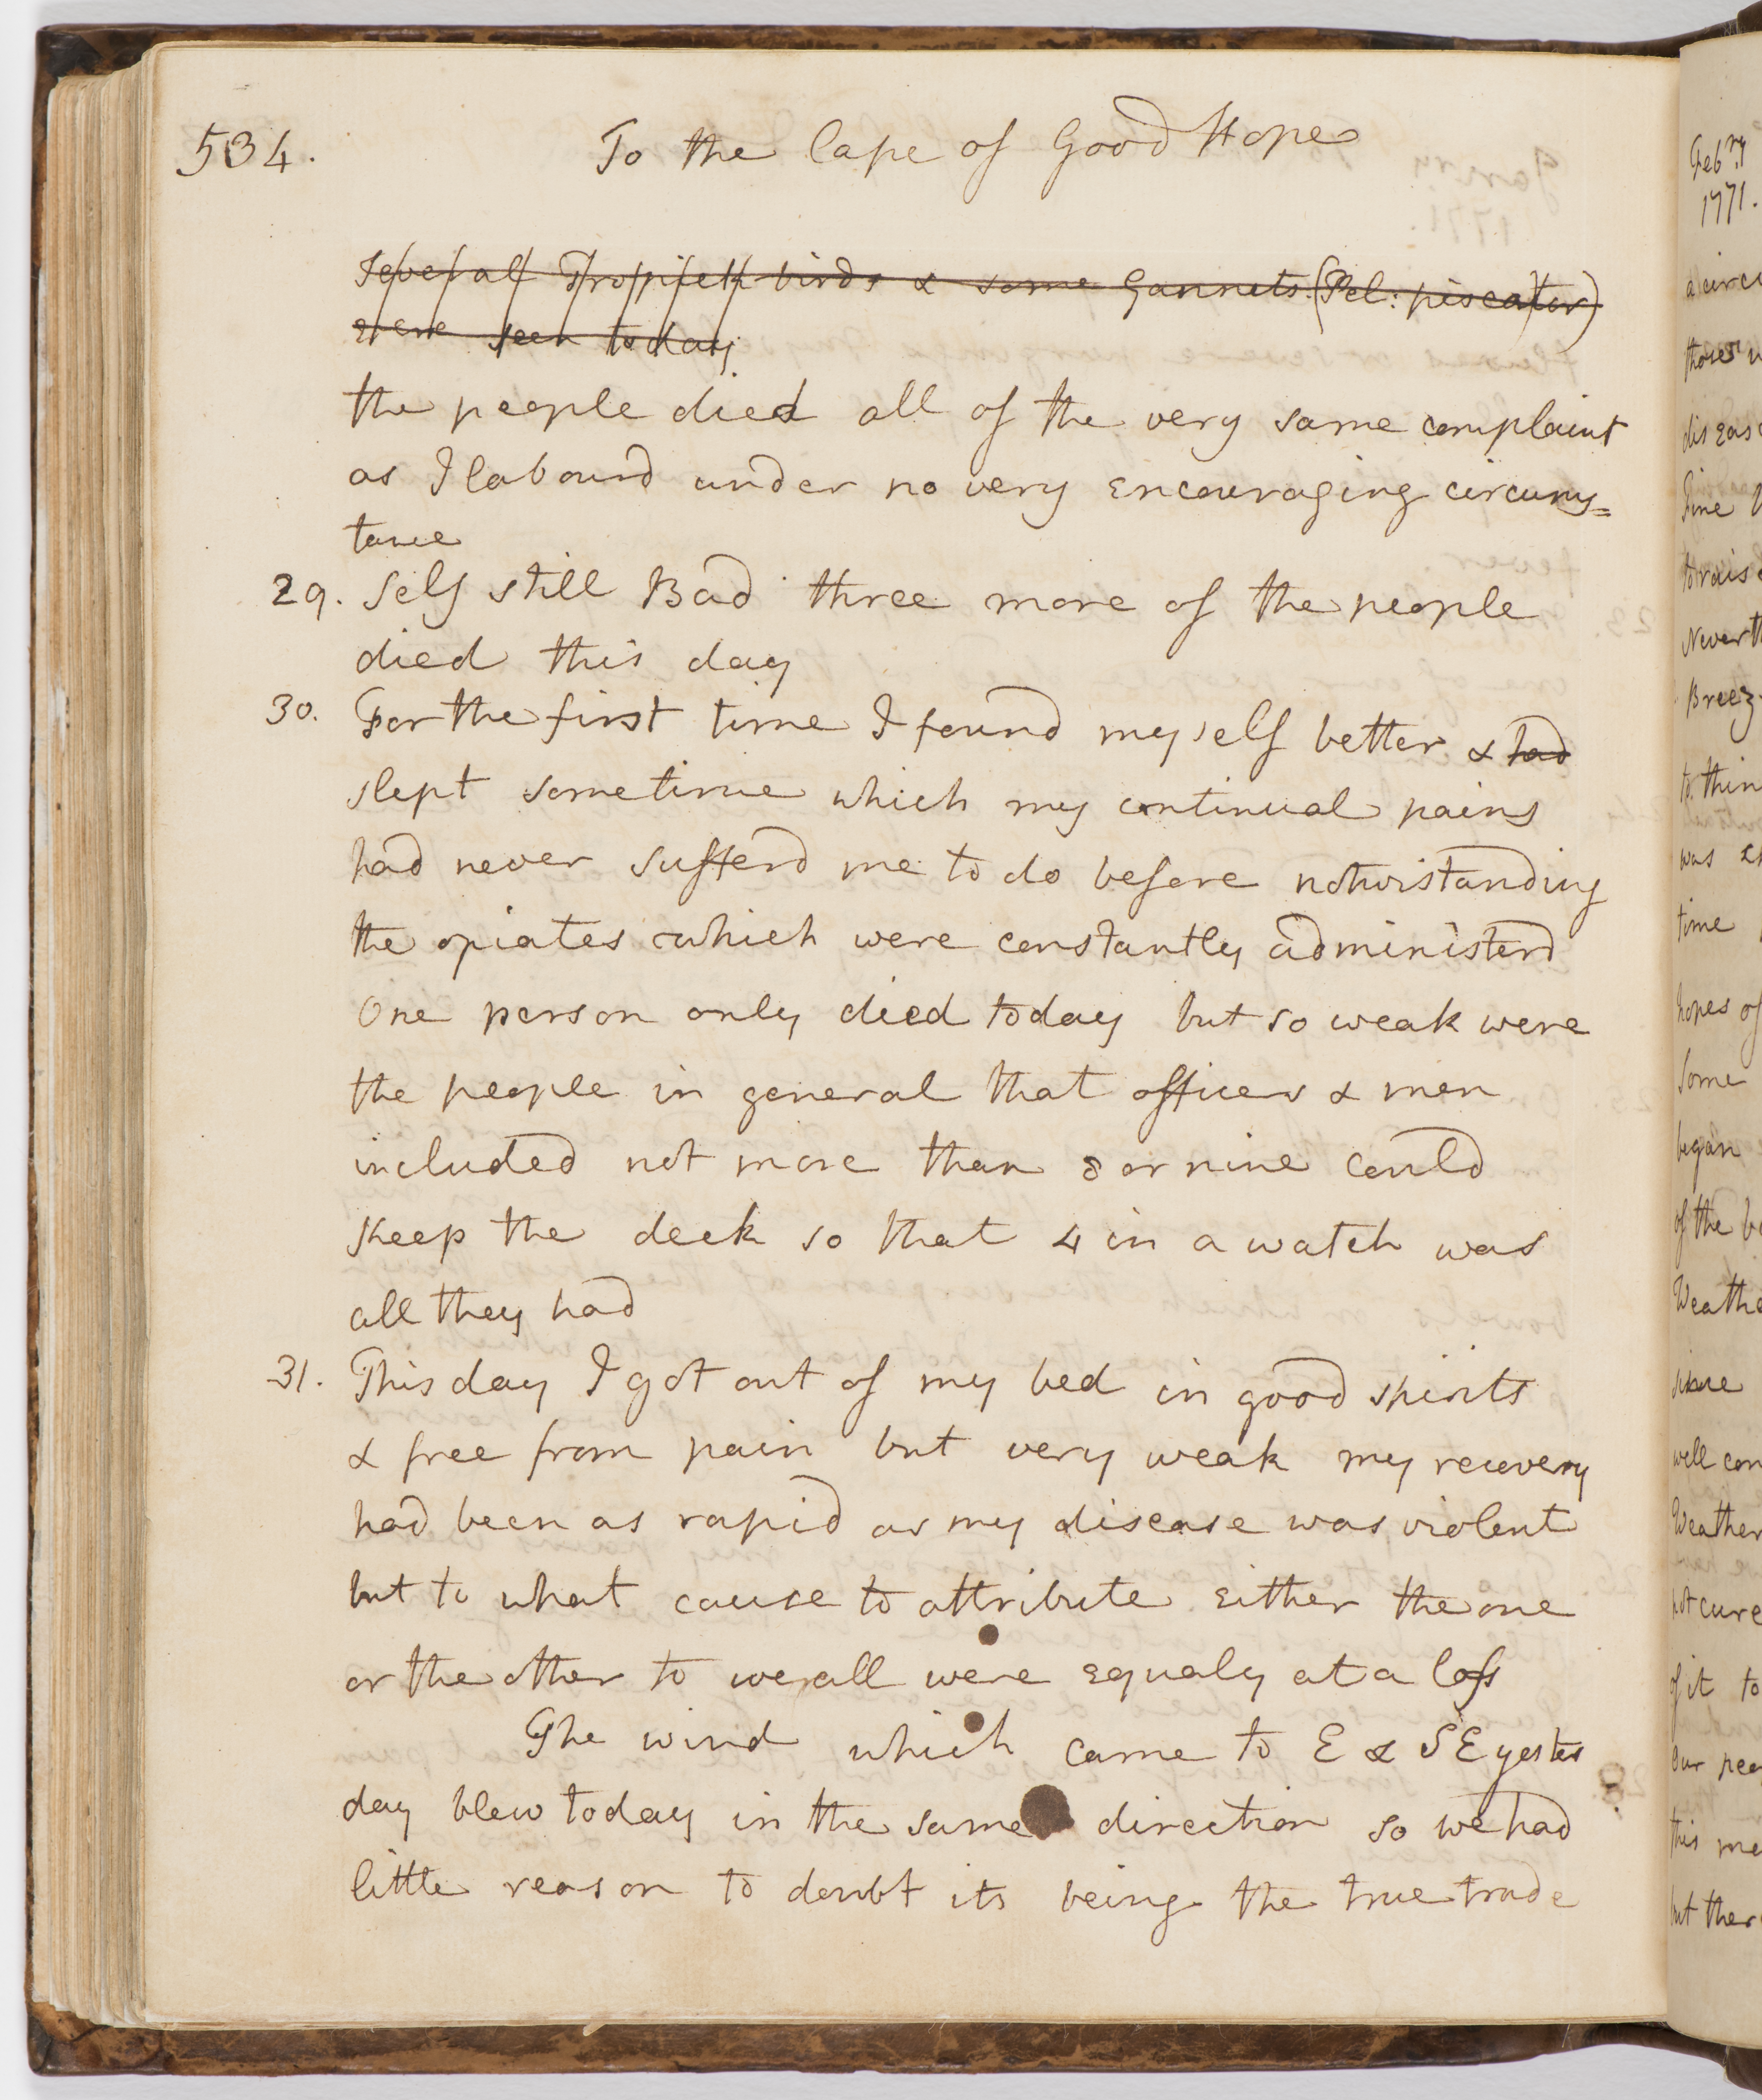 534. To the Cape of Good Hope
Several Tropick birds & some Gannets (Pel: piscator)
were seen today
the people died all of the very same complaint
as I labourd under no very encouraging circums=
tance
29. Self still Bad three more of the people
died this day
30. For the first time I found myself better & had
slept sometime which my continual pains
had never sufferd me to do before notwistanding
the opiates which were constantly administerd
One person only died today but so weak were
the people in general that officers & men
included not more than 8 or nine could
keep the deck so that 4 in a watch was
all they had
31. This day I got out of my bed in good spirits
& free from pain but very weak my recovery
had been as rapid as my disease was violent
but to what cause to attribute either the one
or the other to we all were equaly at a loss
The wind which came to E & SE yester
day blew today in the same direction so we had
little reason to doubt its being the true trade
Febry
1771.